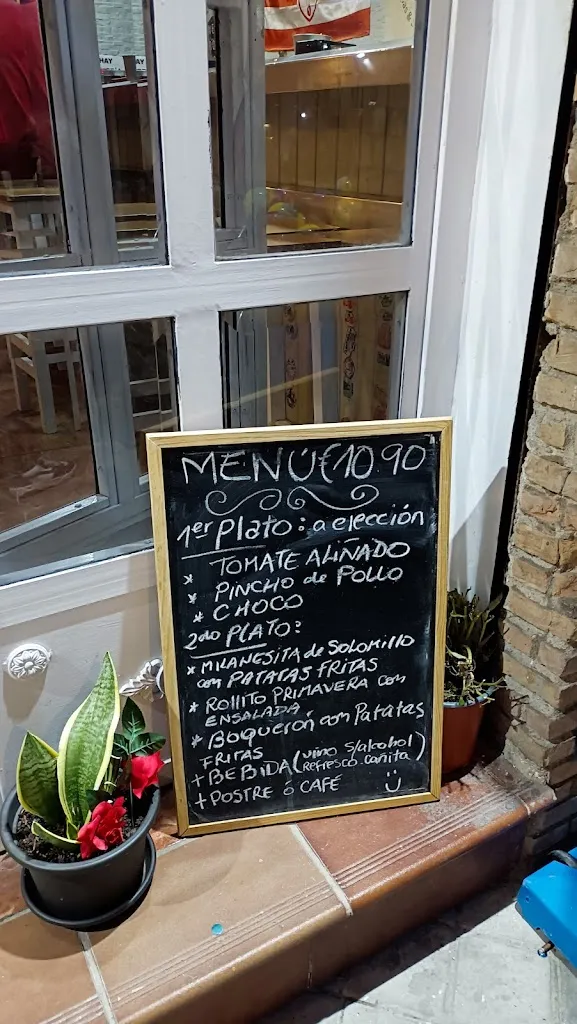 HAY HAY
MENÚ €10.90
1er Plato: a elección
* TOMATE ALIÑADO
* PINCHO de POLLO
* CHOCO
2do PLATO:
* MILANESITA de SOLOMILLO
con PATATAS FRITAS
* ROLLITO PRIMAVERA con
ENSALADA.
* BOQUERÓN con Patatas
FRITAS
+ BEBIDA (vino s/alcohol)
(Refresco. cañita)
+ POSTRE ó CAFÉ